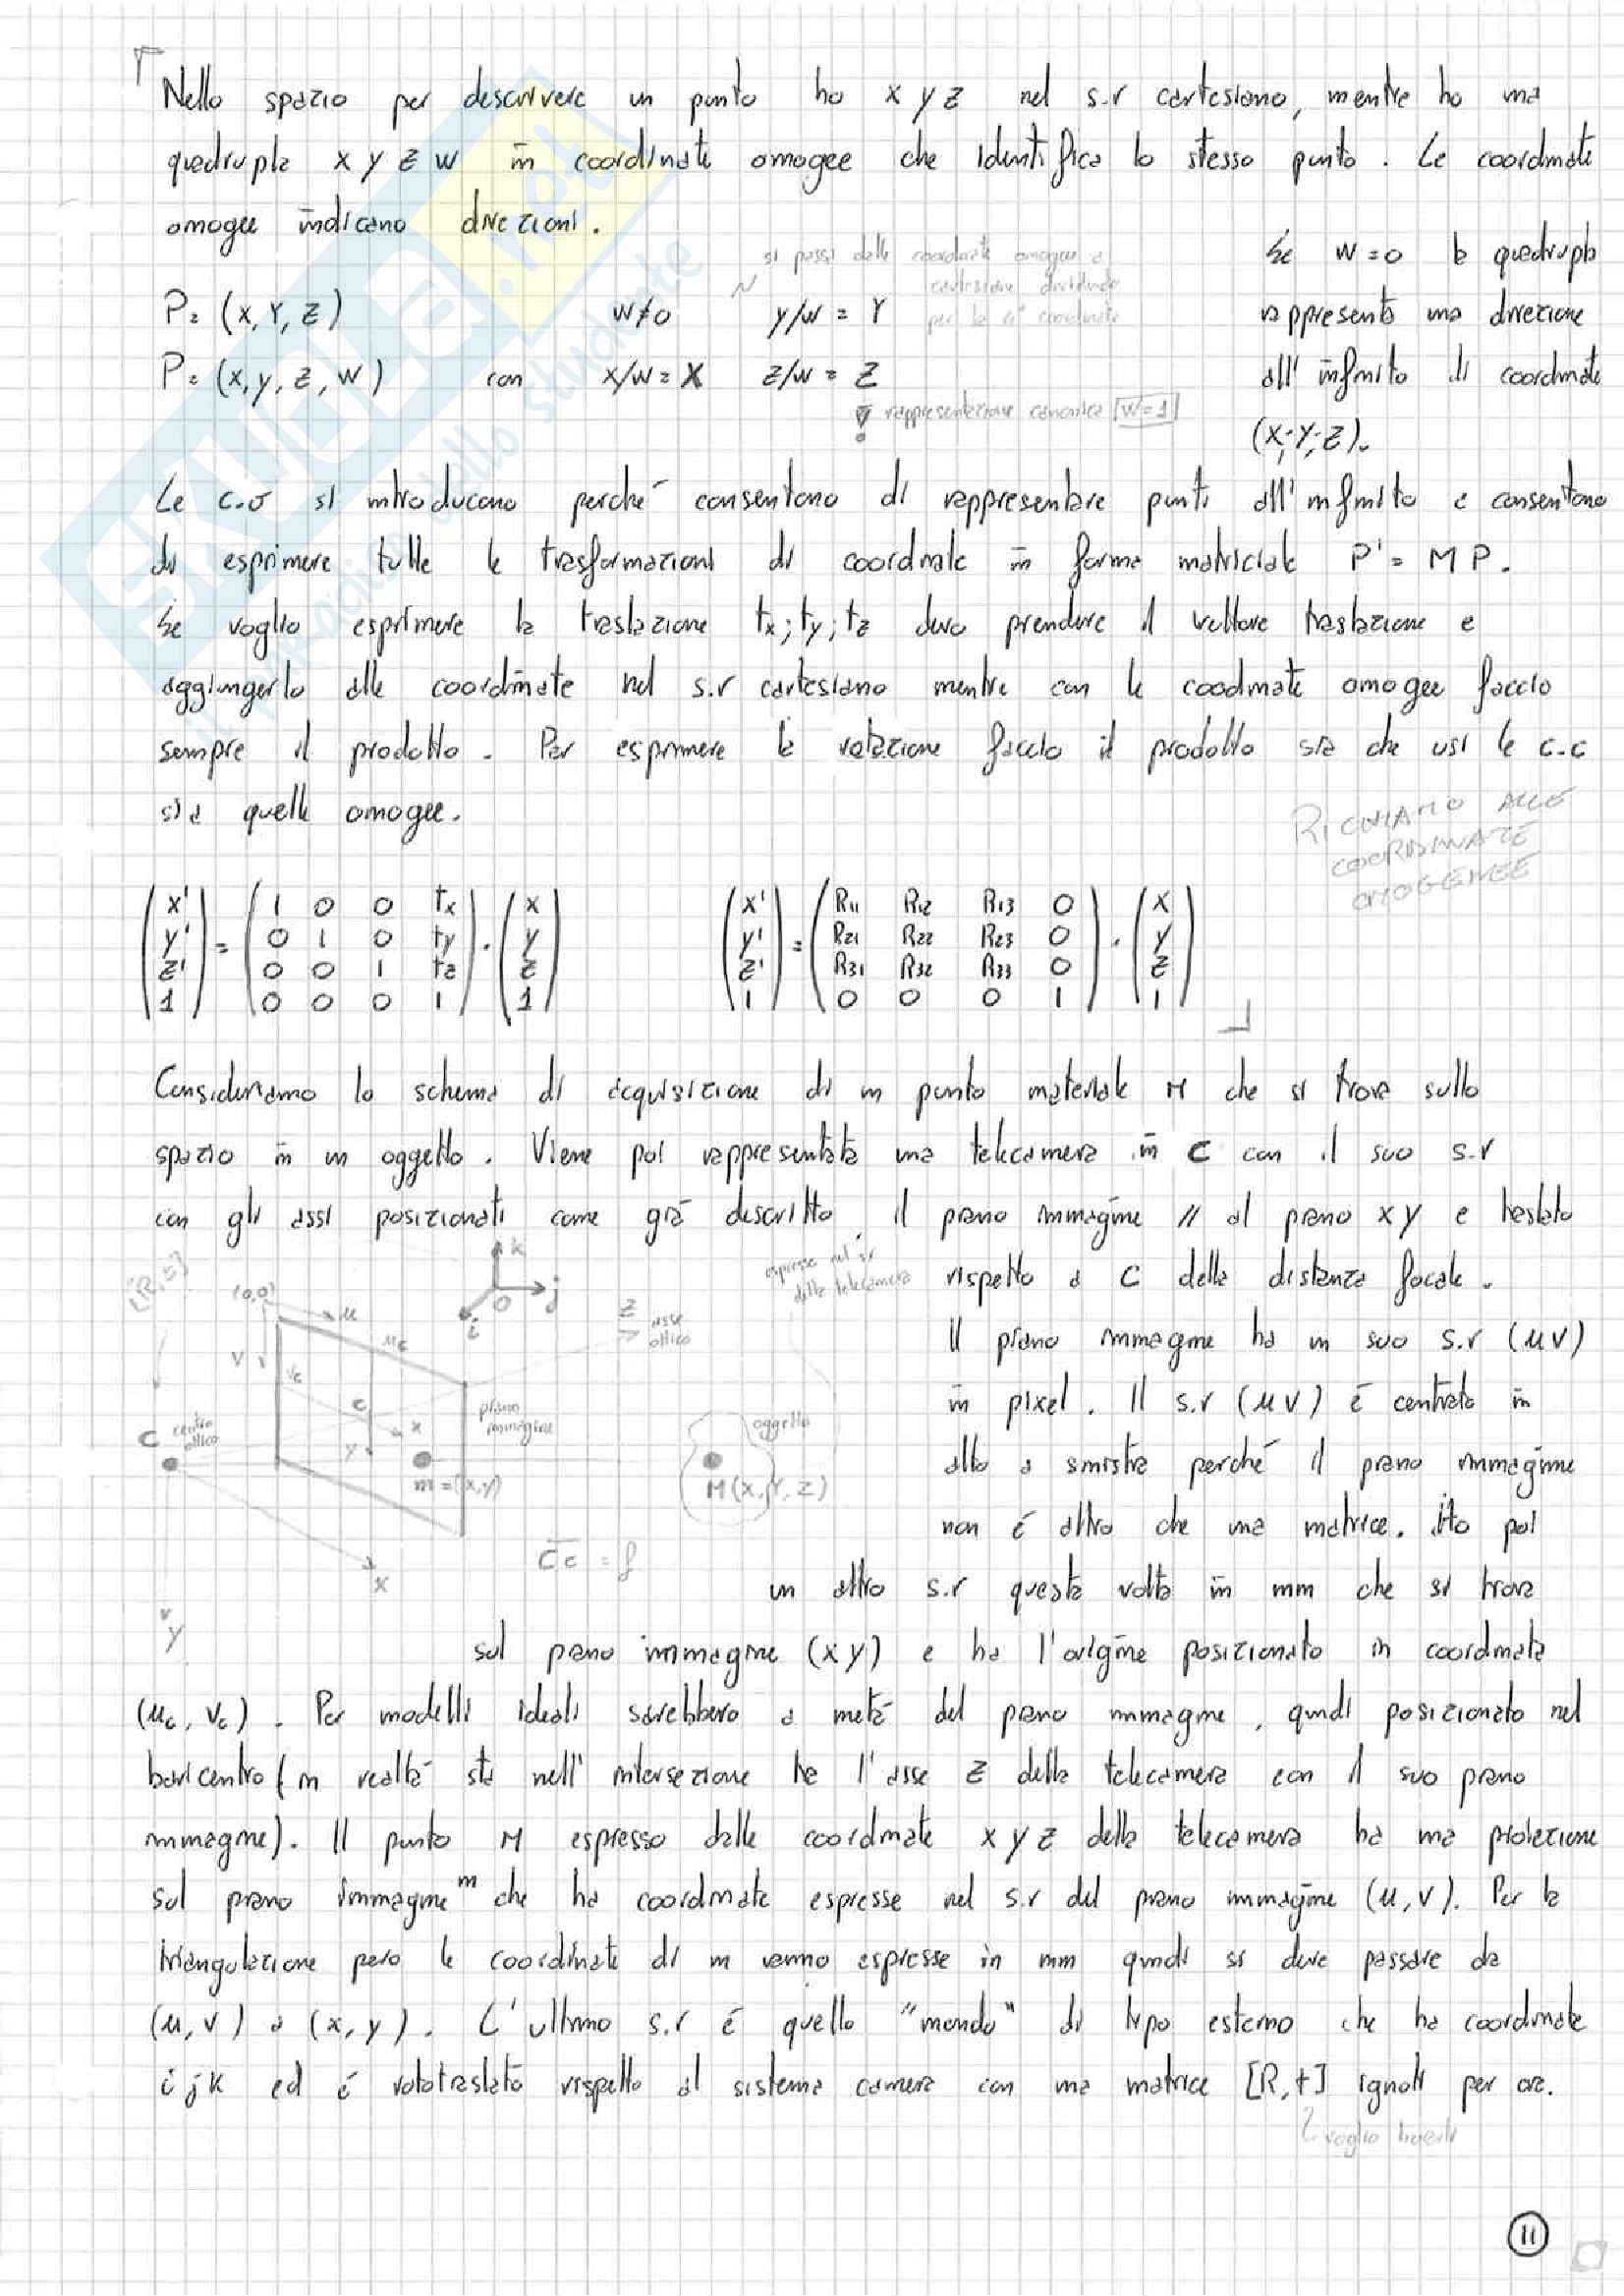 Nello spazio per descrivere un punto ho x y z nel s.r cartesiano, mentre ho una
quadrupla x y z w in coordinate omogee che identifica lo stesso punto. Le coordinate
omogee indicano direzioni.
si passa dalle coordinate omogee a
cartesiane dividendo
per la 4ª coordinata
P = (X, Y, Z) w≠0 y/w = Y
P = (x, y, z, w) con x/w = X z/w = Z
rappresentazione canonica [w=1]
Se w=0 la quadrupla
rappresenta una direzione
all'infinito di coordinate
(X; Y; Z).
Le c.o si introducono perché consentono di rappresentare punti all'infinito e consentono
di esprimere tutte le trasformazioni di coordinate in forma matriciale P' = M P.
Se voglio esprimere la traslazione tx; ty; tz devo prendere il vettore traslazione e
aggiungerlo alle coordinate nel s.r cartesiano mentre con le coodinate omogee faccio
sempre il prodotto. Per esprimere la rotazione faccio il prodotto sia che usi le c.c
sia quelle omogee.
RICHIAMO ALLE
COORDINATE
OMOGENEE
(x') = (1 0 0 tx) · (x)
(y') (0 1 0 ty) (y)
(z') (0 0 1 tz) (z)
(1) (0 0 0 1) (1)
(x') = (R11 R12 R13 0) · (x)
(y') (R21 R22 R23 0) (y)
(z') (R31 R32 R33 0) (z)
(1) (0 0 0 1) (1)
Consideriamo lo schema di acquisizione di un punto materiale M che si trova sullo
spazio in un oggetto. Viene poi rappresentata una telecamera in C con il suo s.r
con gli assi posizionati come già descritto, il piano immagine // al piano x y e traslato
rispetto a C della distanza focale.
Il piano immagine ha un suo s.r (u v)
in pixel. Il s.r (u v) è centrato in
alto a sinistra perché il piano immagine
non è altro che una matrice. Ho poi
un altro s.r questa volta in mm che si trova
sul piano immagine (x y) e ha l'origine posizionato in coordinata
(uc, vc). Per modelli ideali sarebbero a metà del piano immagine, quindi posizionato nel
baricentro (in realtà sta nell'intersezione tra l'asse z della telecamera con il suo piano
immagine). Il punto M espresso dalle coordinate x y z della telecamera ha una proiezione
sul piano immagine m che ha coordinate espresse nel s.r del piano immagine (u, v). Per la
triangolazione però le coordinate di m vanno espresse in mm quindi si deve passare da
(u, v) a (x, y). L'ultimo s.r è quello "mondo" di tipo esterno che ha coordinate
i j k ed è rototraslato rispetto al sistema camera con una matrice [R, t] ignoti per ora.
voglio trovarli
(0,0)
u
v
uc
vc
k
j
i
O
z
asse
ottico
espresse nel s.r
della telecamera
c
x
y
piano
immagine
C centro
ottico
m = (x, y)
oggetto
M (X, Y, Z)
Cc = f
x
y
11
SKUOLA.net